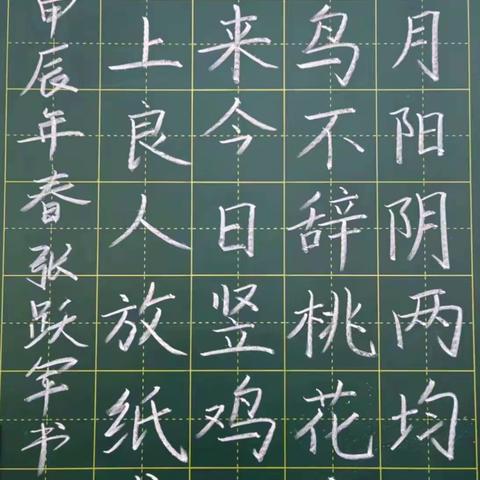 月阳阴两均
鸟不辞桃花
来今日竖鸡
上良人放纸
甲辰年春张跃军书